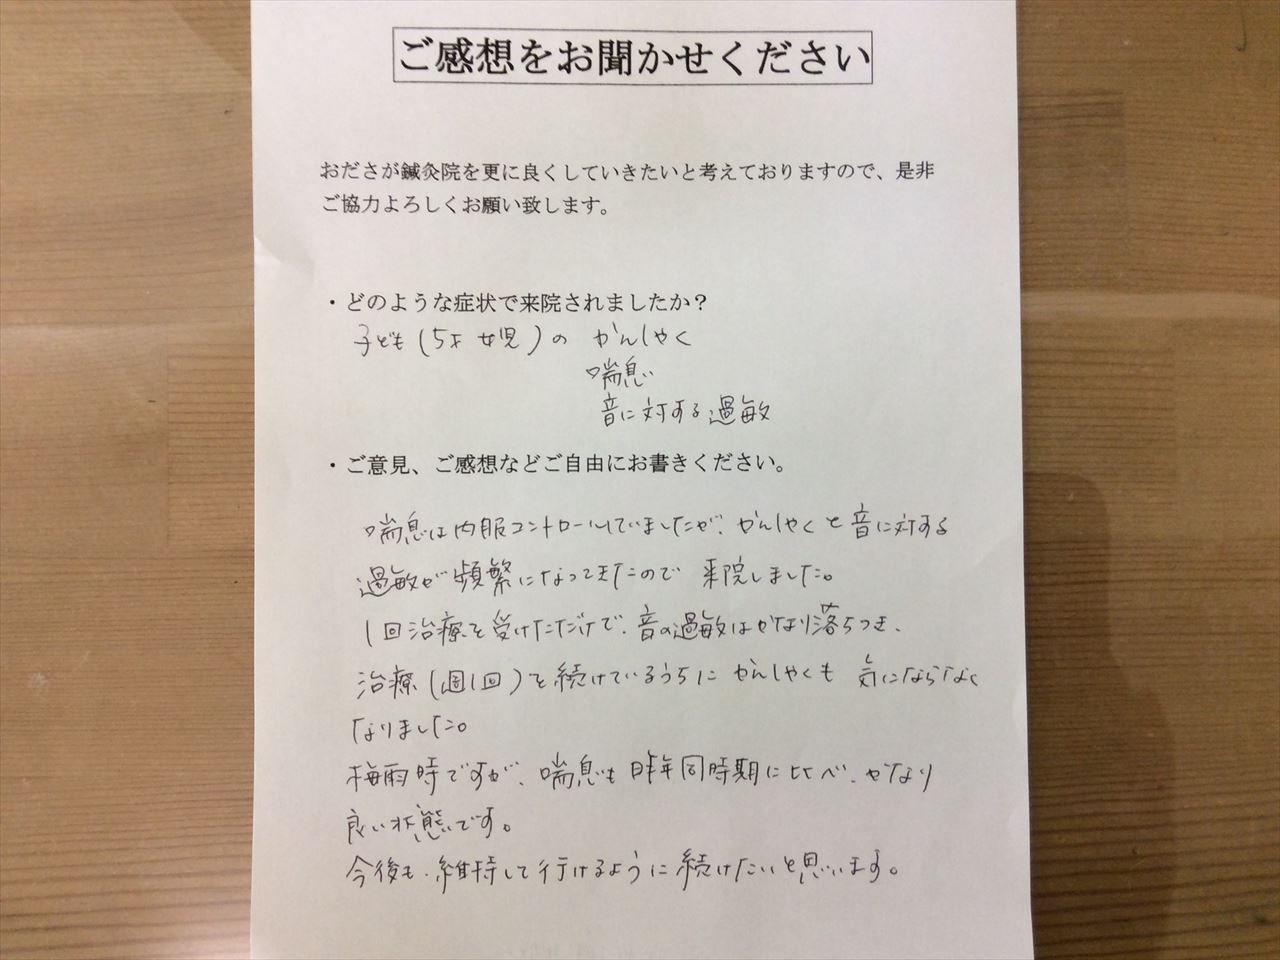 ご感想をお聞かせください
おださが鍼灸院を更に良くしていきたいと考えておりますので、是非
ご協力よろしくお願い致します。
・どのような症状で来院されましたか？
子ども(5才 女児)の かんしゃく
喘息
音に対する過敏
・ご意見、ご感想などご自由にお書きください。
喘息は内服コントロールしていましたが、かんしゃくと音に対する
過敏が頻繁になってきたので 来院しました。
1回治療を受けただけで、音の過敏はかなり落ちつき、
治療(週1回)を続けているうちに かんしゃくも 気にならなく
なりました。
梅雨時ですが、喘息も昨年同時期に比べ、かなり
良い状態です。
今後も、維持して行けるように続けたいと思います。